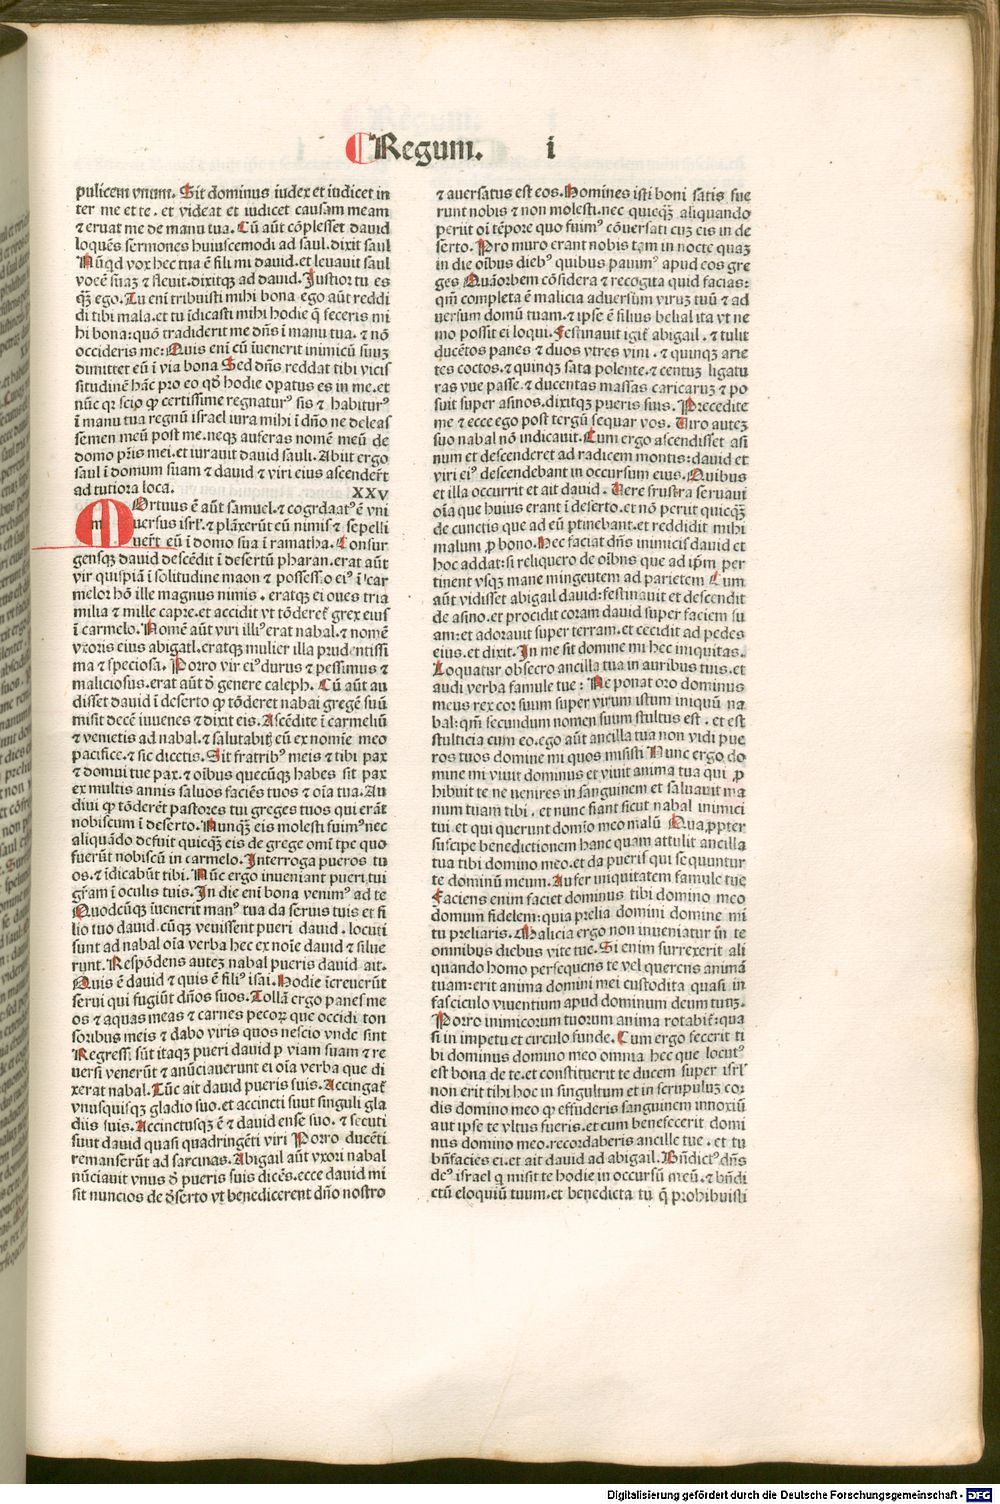 Regum. i
pulicem vnum. Sit dominus iudex et iudicet in
ter me et te . et videat et iudicet causam meam
⁊ eruat me de manu tua. Cū aūt cōplesset dauid
loquēs sermones huiuscemodi ad saul. dixit saul
Nūqd vox hec tua ē fili mi dauid. et leuauit saul
vocē suaꝫ ⁊ fleuit. dixitqꝫ ad dauid. Justior tu es
qꝫ ego. Tu eni tribuisti mihi bona ego aūt reddi
di tibi mala. et tu īdicasti mihi hodie q̄ feceris mi
hi bona: quō tradiderit me dn̄s ī manu tua. ⁊ nō
occideris me: Quis eni cū īuenerit inimicū suuꝫ
dimittet eū ī via bona Sed dn̄s reddat tibi vicis
situdinē hāc pro eo qð hodie opatus es in me. et
nūc qꝛ scio ꝙ certissime regnaturꝰ sis ⁊ habiturꝰ
ī manu tua regnū israel iura mihi ī dn̄o ne deleas
semen meū post me. neqꝫ auferas nomē meū de
domo pr̄is mei. et iurauit dauid sauli. Abiit ergo
saul ī domum suam ⁊ dauid ⁊ viri eius ascenderūt
ad tutiora loca. XXV
MOrtuus ē aūt samuel. ⁊ cōgrdaatꝰ ē vni
uersus isrl̄. ⁊ plāxerūt eū nimis ⁊ sepelli
uerūt eū ī domo sua ī ramatha. Consur
gensqꝫ dauid descēdit ī desertū pharan. erat aūt
vir quispiā ī solitudine maon ⁊ possessio eiꝰ ī car
melo: hō ille magnus nimis . eratqꝫ ei oues tria
milia ⁊ mille capre. et accidit vt tōderet̄ grex eius
ī carmelo. Nomē aūt viri illiꝰ erat nabal. ⁊ nomē
vxoris eius abigail. eratqꝫ mulier illa prudentissi
ma ⁊ speciosa. Porro vir eiꝰ durus ⁊ pessimus ⁊
maliciosus. erat aūt ð genere caleph. Cū aūt au
disset dauid ī deserto ꝙ tōderet nabai gregē suū
misit decē iuuenes ⁊ dixit eis. Ascēdite ī carmelū
⁊ venietis ad nabal. ⁊ salutabitꝭ eū ex nomīe meo
pacifice. ⁊ sic dicetis. Sit fratribꝰ meis ⁊ tibi pax
⁊ domui tue pax. ⁊ oībus quecūqꝫ habes sit pax
ex multis annis saluos faciēs tuos ⁊ oīa tua. Au
diui ꝙ tōderēt pastores tui greges tuos qui erāt
nobiscum ī deserto. Nunqꝫ eis molesti fuimꝰ nec
aliquādo defuit quicqꝫ eis de grege omī tpe quo
fuerūt nobiscū in carmelo. Interroga pueros tu
os. ⁊ īdicabūt tibi. Nūc ergo inueniant pueri tui
gr̄am ī oculis tuis. In die eni bona venimꝰ ad te
Quodcūqꝫ īuenerit manꝰ tua da seruis tuis et fi
lio tuo dauid. cūqꝫ veuissent pueri dauid . locuti
sunt ad nabal oīa verba hec ex noīe dauid ⁊ silue
runt. Respōdens auteꝫ nabal pueris dauid ait.
Quis ē dauid ⁊ quis ē filiꝰ isai. Hodie īcreuerūt
serui qui fugiūt dn̄os suos. Tollā ergo panes me
os ⁊ aquas meas ⁊ carnes pecoꝝ que occidi ton
soribus meis ⁊ dabo viris quos nescio vnde sint
Regressi sūt itaqꝫ pueri dauid ꝑ viam suam ⁊ re
uersi venerūt ⁊ anūciauerunt ei oīa verba que di
xerat nabal. Tūc ait dauid pueris suis. Accingat̄
vnusquisqꝫ gladio suo. et accincti suut singuli gla
diis suis. Accinctusqꝫ ē ⁊ dauid ense suo. ⁊ secuti
suut dauid quasi quadringēti viri Porro ducēti
remanserūt ad sarcinas. Abigail aūt vxori nabal
nūciauit vnus ð pueris suis dicēs. ecce dauid mi
sit nuncios de ðserto vt benedicerent dn̄o nostro
⁊ auersatus est eos. Homines isti boni satis fue
runt nobis ⁊ non molesti. nec quicqꝫ aliquando
periit oī tēpore quo fuimꝰ cōuersati cuꝫ eis in de
serto. Pro muro erant nobis tam in nocte quaꝫ
in die oībus diebꝰ quibus pauimꝰ apud eos gre
ges Quāorbem cōsidera ⁊ recogita quid facias:
qm̄ completa ē malicia aduersum viruꝫ tuū ⁊ ad
uersum domū tuam. ⁊ ipse ē filius belial ita vt ne
mo possit ei loqui. Festinauit igit̄ abigail . ⁊ tulit
ducētos panes ⁊ duos vtres vini . ⁊ quinqꝫ arie
tes coctos. ⁊ quinqꝫ sata polente. ⁊ centuꝫ ligatu
ras vue passe. ⁊ ducentas massas caricaruꝫ ⁊ po
suit super asinos. dixitqꝫ pueris suis. Precedite
me ⁊ ecce ego post tergū sequar vos. Uiro auteꝫ
suo nabal nō indicauit. Cum ergo ascendisset asi
num et descenderet ad radicem montis: dauid et
viri eiꝰ descendebant in occursum eius. Quibus
et illa occurrit et ait dauid . Uere frustra seruaui
oīa que huius erant ī deserto. et nō periit quicqꝫ
de cunctis que ad eū ptinebant. et reddidit mihi
malum ꝓ bono. Hec faciat dn̄s inimicis dauid et
hoc addat: si reliquero de oībns que ad ip̄m per
tinent vsqꝫ mane mingentem ad parietem Cum
aūt vidisset abigail dauid: festinauit et descendit
de asino. et procidit coram dauid super faciem su
am: et adorauit super terram. et cecidit ad pedes
eius. et dixit. In me sit domine mi hec iniquitas.
Loquatur obsecro ancilla tua in auribus tuis. et
audi verba famule tue : Ne ponat oro dominus
meus rex cor suum super virum istum iniquū na
bal: qm̄ secundum nomen suum stultus est . et est
stulticia cum eo. ego aūt ancilla tua non vidi pue
ros tuos domine mi quos misisti Nunc ergo do
mine mi viuit dominus et viuit anima tua qui ꝓ
hibuit te ne venires in sanguinem et saluauit ma
num tuam tibi . et nunc fiant sicut nabal inimici
tui. et qui querunt domīo meo malū Quaꝓpter
suscipe benedictionem hanc quam attulit ancilla
tua tibi domino meo. et da pueris qui sequuntur
te dominū meum. Aufer iniquitatem famule tue
Faciens enim faciet dominus tibi domino meo
domum fidelem: quia prelia domini domine mi
tu preliaris. Malicia ergo non inueniatur in te
omnibus diebus vite tue. Si enim surrexerit ali
quando homo persequens te vel querens animā
tuam: erit anima domini mei custodita quasi in
fasciculo viuentium apud dominum deum tuuꝫ.
Porro inimicorum tuorum anima rotabit̄: qua
si in impetu et circulo funde. Cum ergo fecerit ti
bi dominus domino meo omnia hec que locutꝰ
est bona de te. et constituerit te ducem super isrl̄
non erit tibi hoc in singultum et in scrupuluꝫ cor
dis domino meo ꝙ effuderis sanguinem innoxiū
aut ipse te vltus fueris. et cum benefecerit domi
nus domino meo. recordaberis ancille tue . et tu
bn̄facies ei. et ait dauid ad abigail. Bn̄dictꝰ dn̄s
deꝰ israel q misit te hodie in occursū meū. ⁊ bn̄di
ctū eloquiū tuum. et benedicta tu q̄ prohibuisti
Digitalisierung gefördert durch die Deutsche Forschungsgemeinschaft - DFG